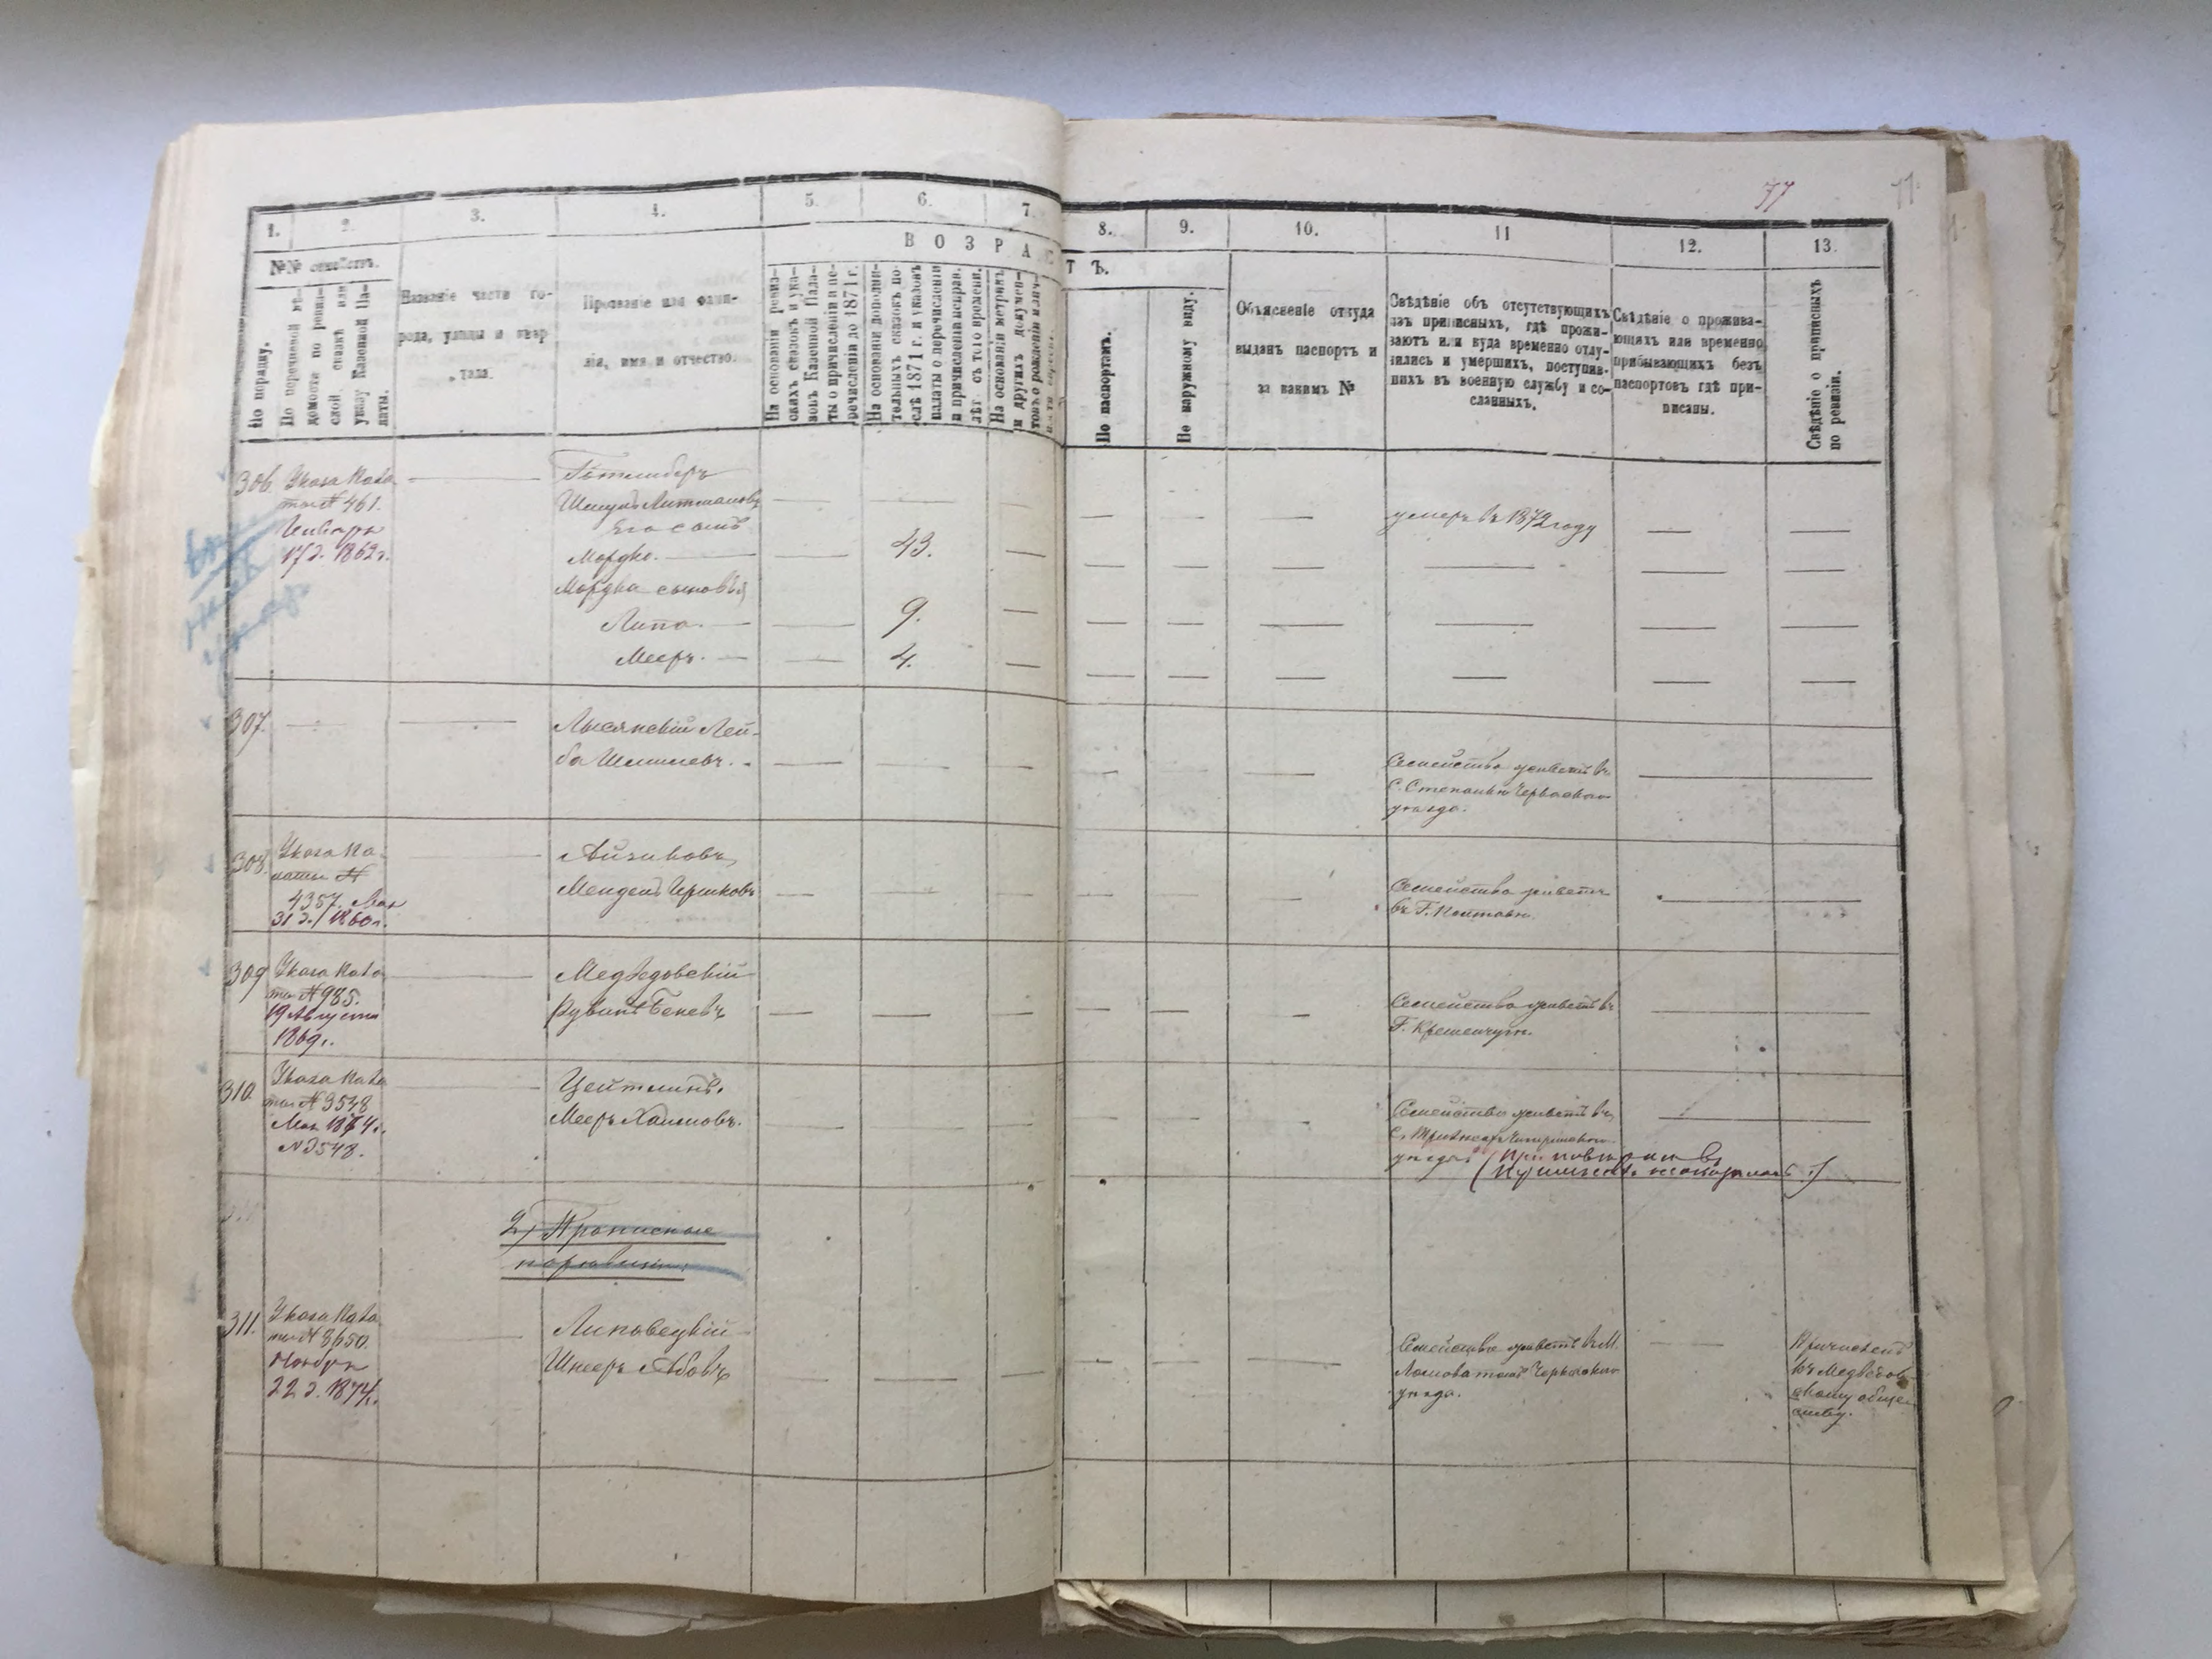 77
1.
2.
3.
4.
5.
6.
7.
8.
9.
10.
11
12.
13.
№№ семействъ.
В О З Р А С
Т Ъ.
По порядку.
По перечневой вѣ-
домости по ревиз-
ской сказкѣ или
указу Казенной Па-
латы.
Названіе части го-
рода, улицы и квар
тала.
Прозваніе или фами-
лія, имя и отчество.
На основаніи ревиз-
скихъ сказокъ и ука-
зовъ Казенной Пала-
ты о причисленіи и пе-
речисленіи до 1871 г.
На основаніи дополни-
тельныхъ сказокъ по-
слѣ 1871 г. и указовъ
палаты о перечисленіи
и причисленіи исправ.
лѣт съ того времени.
На основаніи метрикъ
и другихъ докумен-
товъ о рожденіи
По паспортамъ.
По наружному виду.
Объясненіе откуда
выданъ паспортъ и
за какимъ №
Свѣдѣніе объ отсутствующихъ
изъ приписныхъ, гдѣ прожи-
ваютъ или куда временно отлу-
чились и умерших, поступив-
шихъ въ военную службу и со-
сланныхъ.
Свѣдѣніе о прожива-
ющихъ или временно
прибывающихъ безъ
паспортовъ гдѣ при-
писаны.
Свѣдѣніе о приписныхъ
по ревизіи.
306. Указа Пала
ты № 461.
Января
17 д. 1862 г.
Готлиберъ
Шмуль Литмановъ
Его сынъ
Мордко. 43.
Мордка сыновья
Липа. 9.
Мееръ. 4.
умеръ въ 1872 году
307.
Лысянскій Лей-
ба Шмилевъ.
Семейство живетъ въ
С. Степанки Черкаскаго
уѣзда.
308. Указа Па-
латы №
4357. Мая
31 д. 1860 г.
Айзиковъ
Мендель Гершковъ
Семейство живетъ
въ Г. Полтавѣ.
309 Указа Пала
ты № 985.
19 Августа
1869 г.
Медведовскій
Рувинъ Беневъ
Семейство живетъ въ
Г. Кременчугѣ.
310. Указа Пала
ты № 3548
Мая 1874 г.
№ 3548.
Цейтлинъ.
Мееръ Хаимовъ.
Семейство живетъ въ
уѣзда.
2) Прописные
по ревизіи.
311. Указа Пала
ты № 8650.
Ноября
22 д. 1874 г.
Липовецкій
Шнееръ Абовъ
Семейство живетъ въ М.
Ломоватомъ Черкаскаго
уѣзда.
Причисленъ
къ Медведов-
скому обще-
ству.